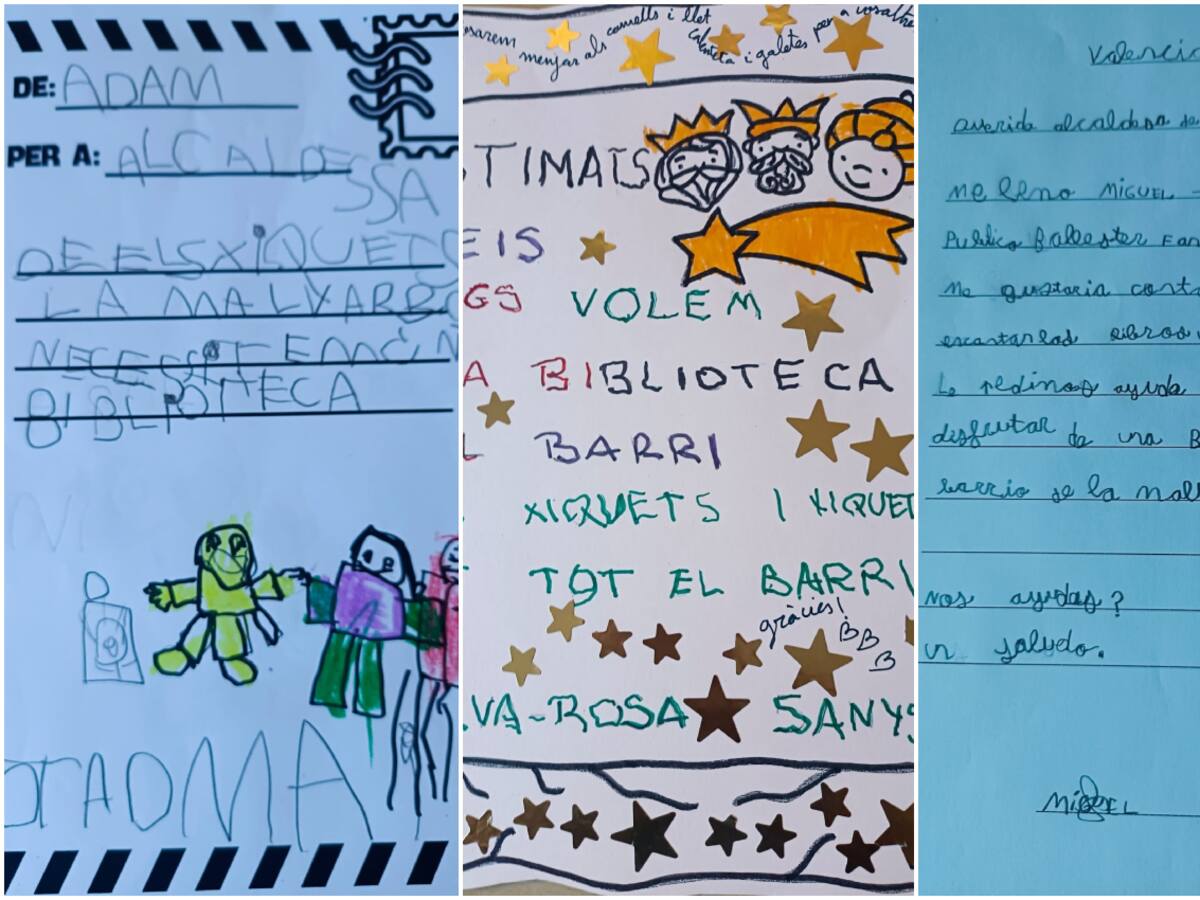 DE: ADAM
PER A: ALCALDE
SSA
DE ELS XIQUETS
LA MALVARR
NECESITEM
BIBLIOTECA
ADMA
menjar als camells i llet
calenteta i galetes per a vosaltre
TIMATS
EIS
GS VOLEM
A BIBLIOTECA
L BARRI
XIQUETS I XIQUET
TOT EL BARRI
gràcies!
B B B
VA-ROSA SANYS
Valencia
querida alcaldesa de
Me lleno MIGUEL
Publico Ballester Fan
Me gustaria conta
encantan los libros
Le pedimos ayuda
disfrutar de una B
barrio de la mal
Nos ayudas?
un saludo.
MIGUEL